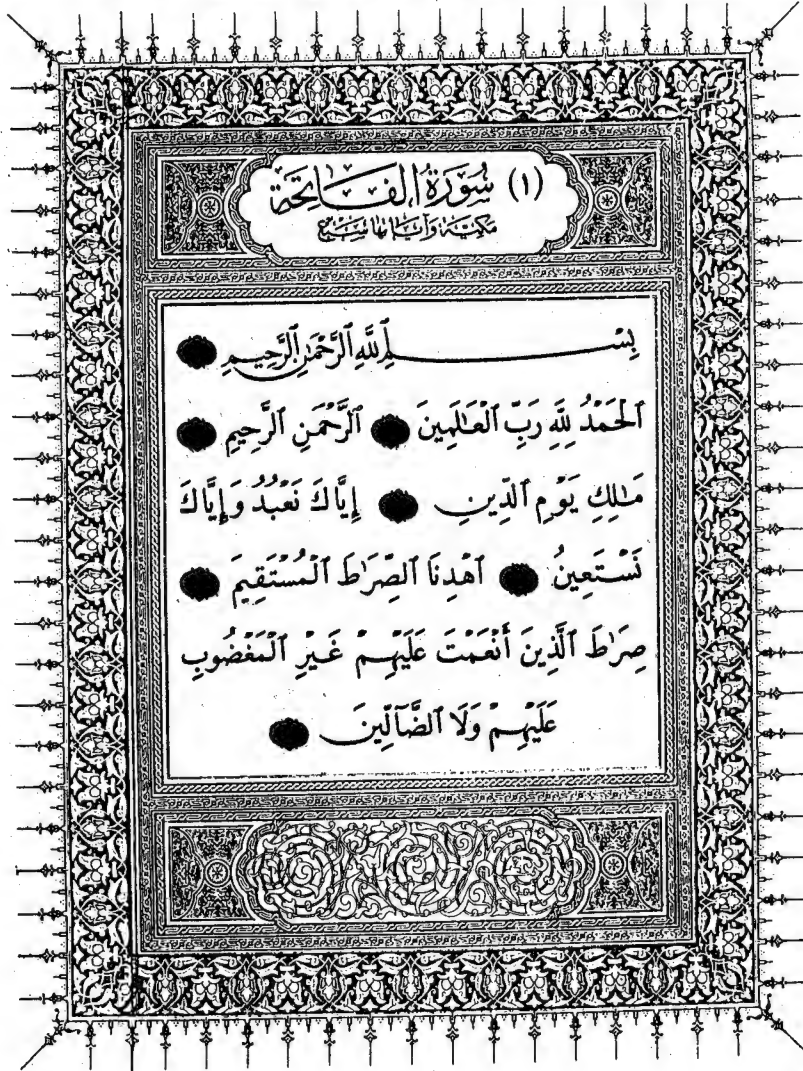 (١) سُورَةُ الفَاتِحَة
مَكيَّة وَآيَاتها سَبْع
بِسْمِ ٱللَّهِ ٱلرَّحْمَٰنِ ٱلرَّحِيمِ
ٱلْحَمْدُ لِلَّهِ رَبِّ ٱلْعَٰلَمِينَ ٱلرَّحْمَٰنِ ٱلرَّحِيمِ
مَٰلِكِ يَوْمِ ٱلدِّينِ إِيَّاكَ نَعْبُدُ وَإِيَّاكَ
نَسْتَعِينُ ٱهْدِنَا ٱلصِّرَٰطَ ٱلْمُسْتَقِيمَ
صِرَٰطَ ٱلَّذِينَ أَنْعَمْتَ عَلَيْهِمْ غَيْرِ ٱلْمَغْضُوبِ
عَلَيْهِمْ وَلَا ٱلضَّآلِّينَ